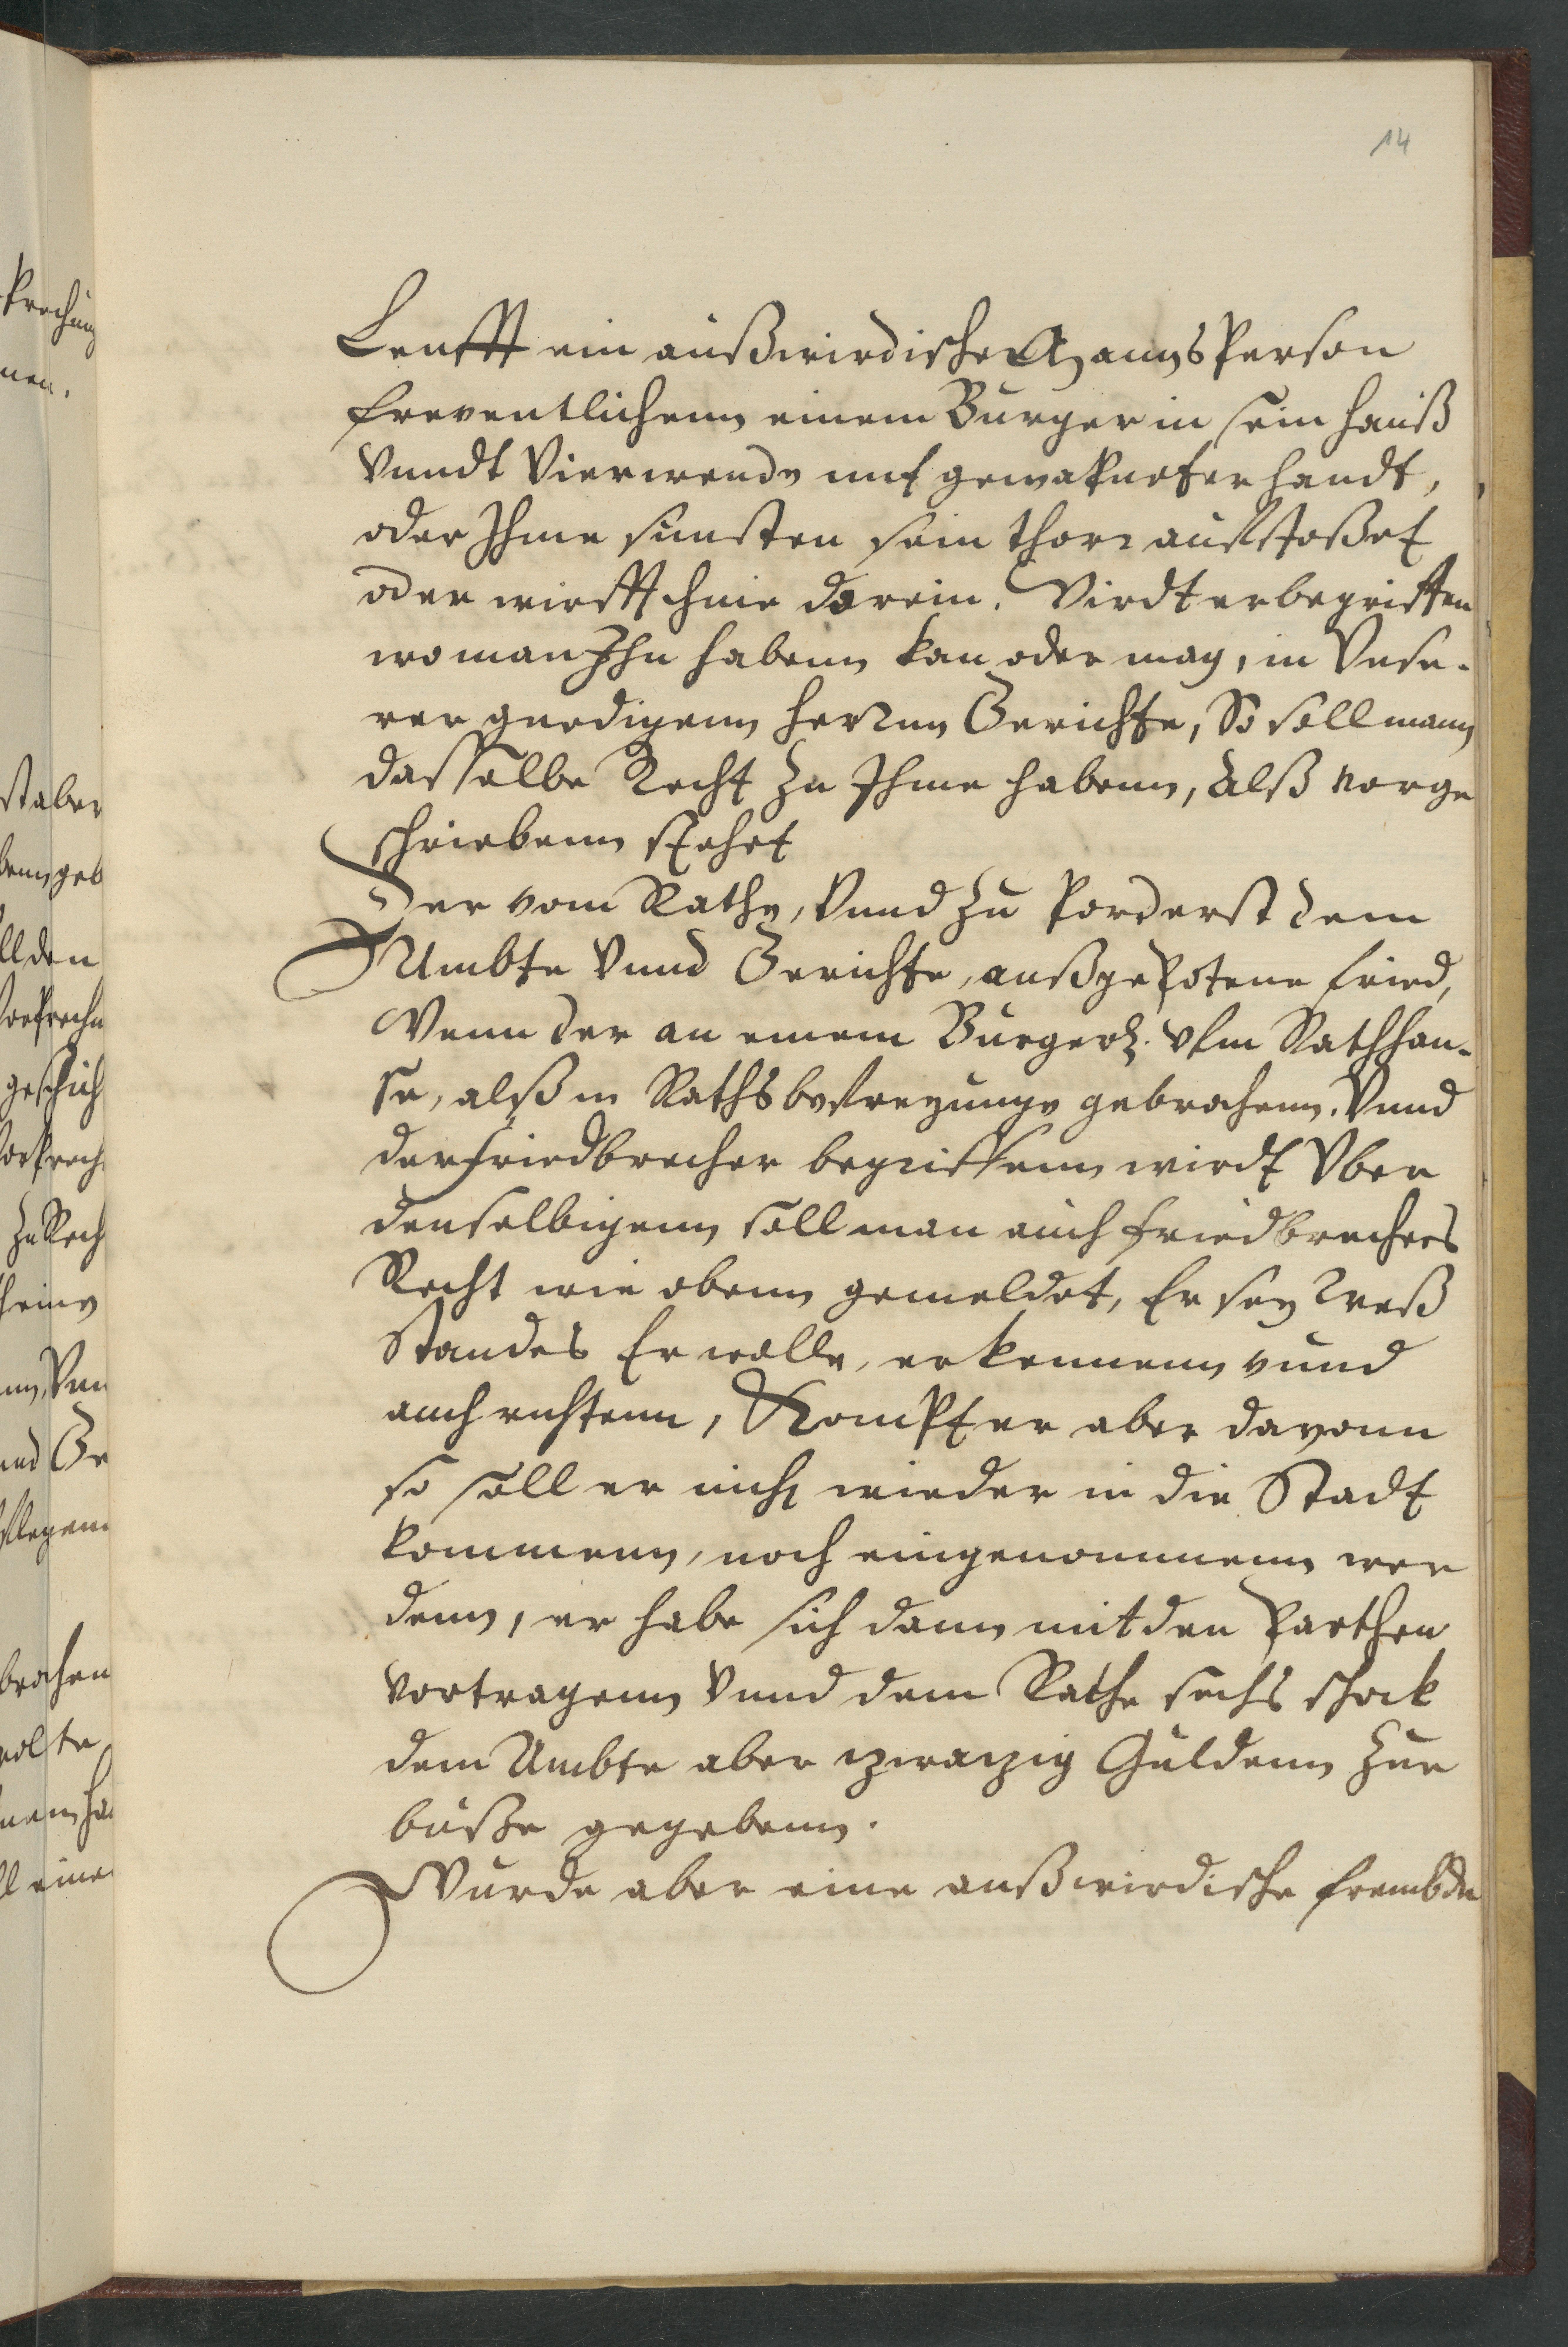 14
Leufft ein außwirdische MannsPerson
freventlichenn einem Burger in sein hauß
Vnndt Vierwende mit gewapneter handt,
oder Ihme sunsten sein thorr aufstoßet
oder wirfft ihme darein. Wirdt er begriffen
wo man Ihn habenn kan oder mag, in Vnse-
rer gnedigenn herrnn Gerichte, So soll mann
dasselbe Recht zu Ihme habenn, Alß vorge
schriebenn stehet
Der vom Rathe, Vnnd zu forderst dem
Ambte Vnnd Gerichte, außgepotene fried,
Wenn der an einem Burger vfm Rathhau-
se, alß in Raths gebrochenn. Vnnd
der friedbrecher begriffenn wirdt Vber
denselbigenn soll man auch friedbrechers
Recht wie obenn gemeldet, Er sey weß
Standes Er wolle, erkennenn vnnd
auch richtenn, Kompt er aber davonn
so soll er nicht wieder in die Stadt
kommenn, noch eingenommenn wer
denn, er habe sich dann mit den Parthen
vortragenn Vnnd dem Rathe sechs schock
dem Ambte aber zwanzig Güldenn zur
buße gegebenn.
Wurde aber eine außwirdische frembde